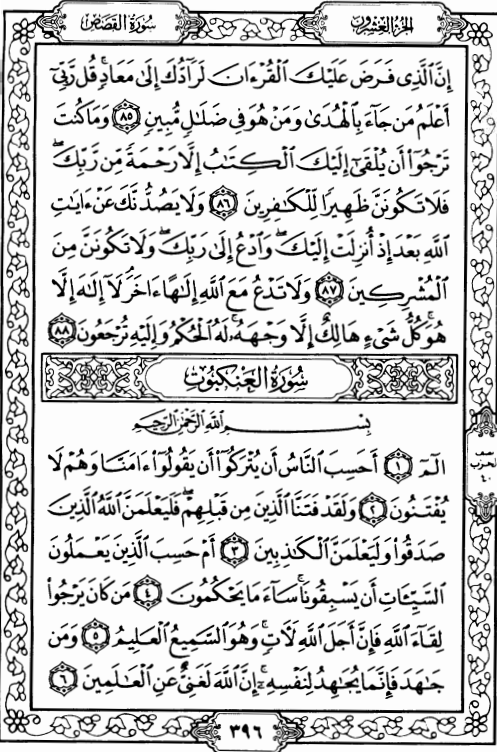 الجزء العشرون
سورة القصص
إِنَّ ٱلَّذِى فَرَضَ عَلَيْكَ ٱلْقُرْءَانَ لَرَآدُّكَ إِلَىٰ مَعَادٍ ۚ قُل رَّبِّىٓ
أَعْلَمُ مَن جَآءَ بِٱلْهُدَىٰ وَمَنْ هُوَ فِى ضَلَٰلٍ مُّبِينٍ ٨٥ وَمَا كُنتَ
تَرْجُوٓا۟ أَن يُلْقَىٰٓ إِلَيْكَ ٱلْكِتَٰبُ إِلَّا رَحْمَةً مِّن رَّبِّكَ ۖ
فَلَا تَكُونَنَّ ظَهِيرًا لِّلْكَٰفِرِينَ ٨٦ وَلَا يَصُدُّنَّكَ عَنْ ءَايَٰتِ
ٱللَّهِ بَعْدَ إِذْ أُنزِلَتْ إِلَيْكَ ۖ وَٱدْعُ إِلَىٰ رَبِّكَ ۖ وَلَا تَكُونَنَّ مِنَ
ٱلْمُشْرِكِينَ ٨٧ وَلَا تَدْعُ مَعَ ٱللَّهِ إِلَٰهًا ءَاخَرَ ۘ لَآ إِلَٰهَ إِلَّا
هُوَ ۚ كُلُّ شَىْءٍ هَالِكٌ إِلَّا وَجْهَهُۥ ۚ لَهُ ٱلْحُكْمُ وَإِلَيْهِ تُرْجَعُونَ ٨٨
سورة العنكبوت
بِسْمِ ٱللَّهِ ٱلرَّحْمَٰنِ ٱلرَّحِيمِ
الٓمٓ ١ أَحَسِبَ ٱلنَّاسُ أَن يُتْرَكُوٓا۟ أَن يَقُولُوٓا۟ ءَامَنَّا وَهُمْ لَا
يُفْتَنُونَ ٢ وَلَقَدْ فَتَنَّا ٱلَّذِينَ مِن قَبْلِهِمْ ۖ فَلَيَعْلَمَنَّ ٱللَّهُ ٱلَّذِينَ
صَدَقُوا۟ وَلَيَعْلَمَنَّ ٱلْكَٰذِبِينَ ٣ أَمْ حَسِبَ ٱلَّذِينَ يَعْمَلُونَ
ٱلسَّيِّـَٔاتِ أَن يَسْبِقُونَا ۚ سَآءَ مَا يَحْكُمُونَ ٤ مَن كَانَ يَرْجُوا۟
لِقَآءَ ٱللَّهِ فَإِنَّ أَجَلَ ٱللَّهِ لَءَاتٍ ۚ وَهُوَ ٱلسَّمِيعُ ٱلْعَلِيمُ ٥ وَمَن
جَٰهَدَ فَإِنَّمَا يُجَٰهِدُ لِنَفْسِهِۦٓ ۚ إِنَّ ٱللَّهَ لَغَنِىٌّ عَنِ ٱلْعَٰلَمِينَ ٦
نصف
الحزب
٤٠
٣٩٦